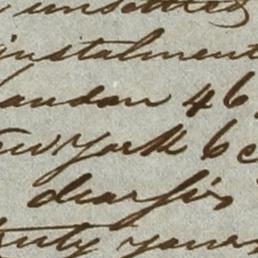 unsettled
instalment
London 46
New York 6 c
dear Sir
truly yours